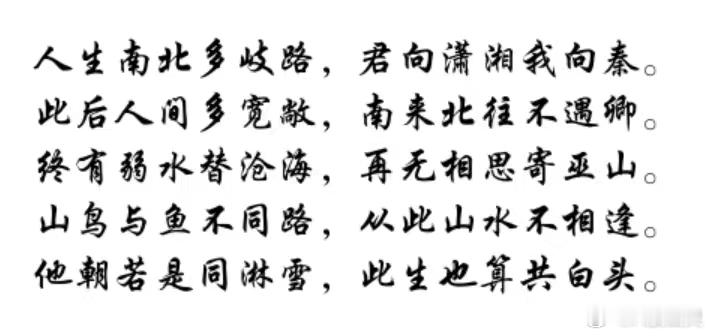 人生南北多歧路，君向潇湘我向秦。
此后人间多宽敞，南来北往不遇卿。
终有弱水替沧海，再无相思寄巫山。
山鸟与鱼不同路，从此山水不相逢。
他朝若是同淋雪，此生也算共白头。